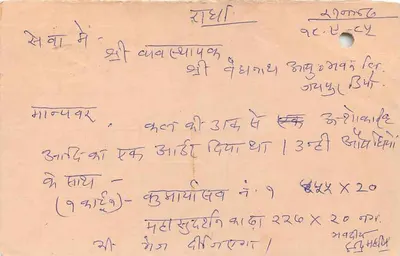 राधा
१८.५.८५
सेवा में -
श्री व्यवस्थापक
श्री वैद्यनाथ आयु. भवन लि.
जयपुर डिपो
मान्यवर, कल की डाक से अशोकारिष्ट
आदि का एक आर्डर दिया था । उन्ही औषधियों
के साथ -
(१ कार्टून) - कुमार्यासव नं. १ ४५५ X 20
महासुदर्शन काढ़ा २२५ X २० नग.
भी भेज दीजिएगा ।
भवदीय